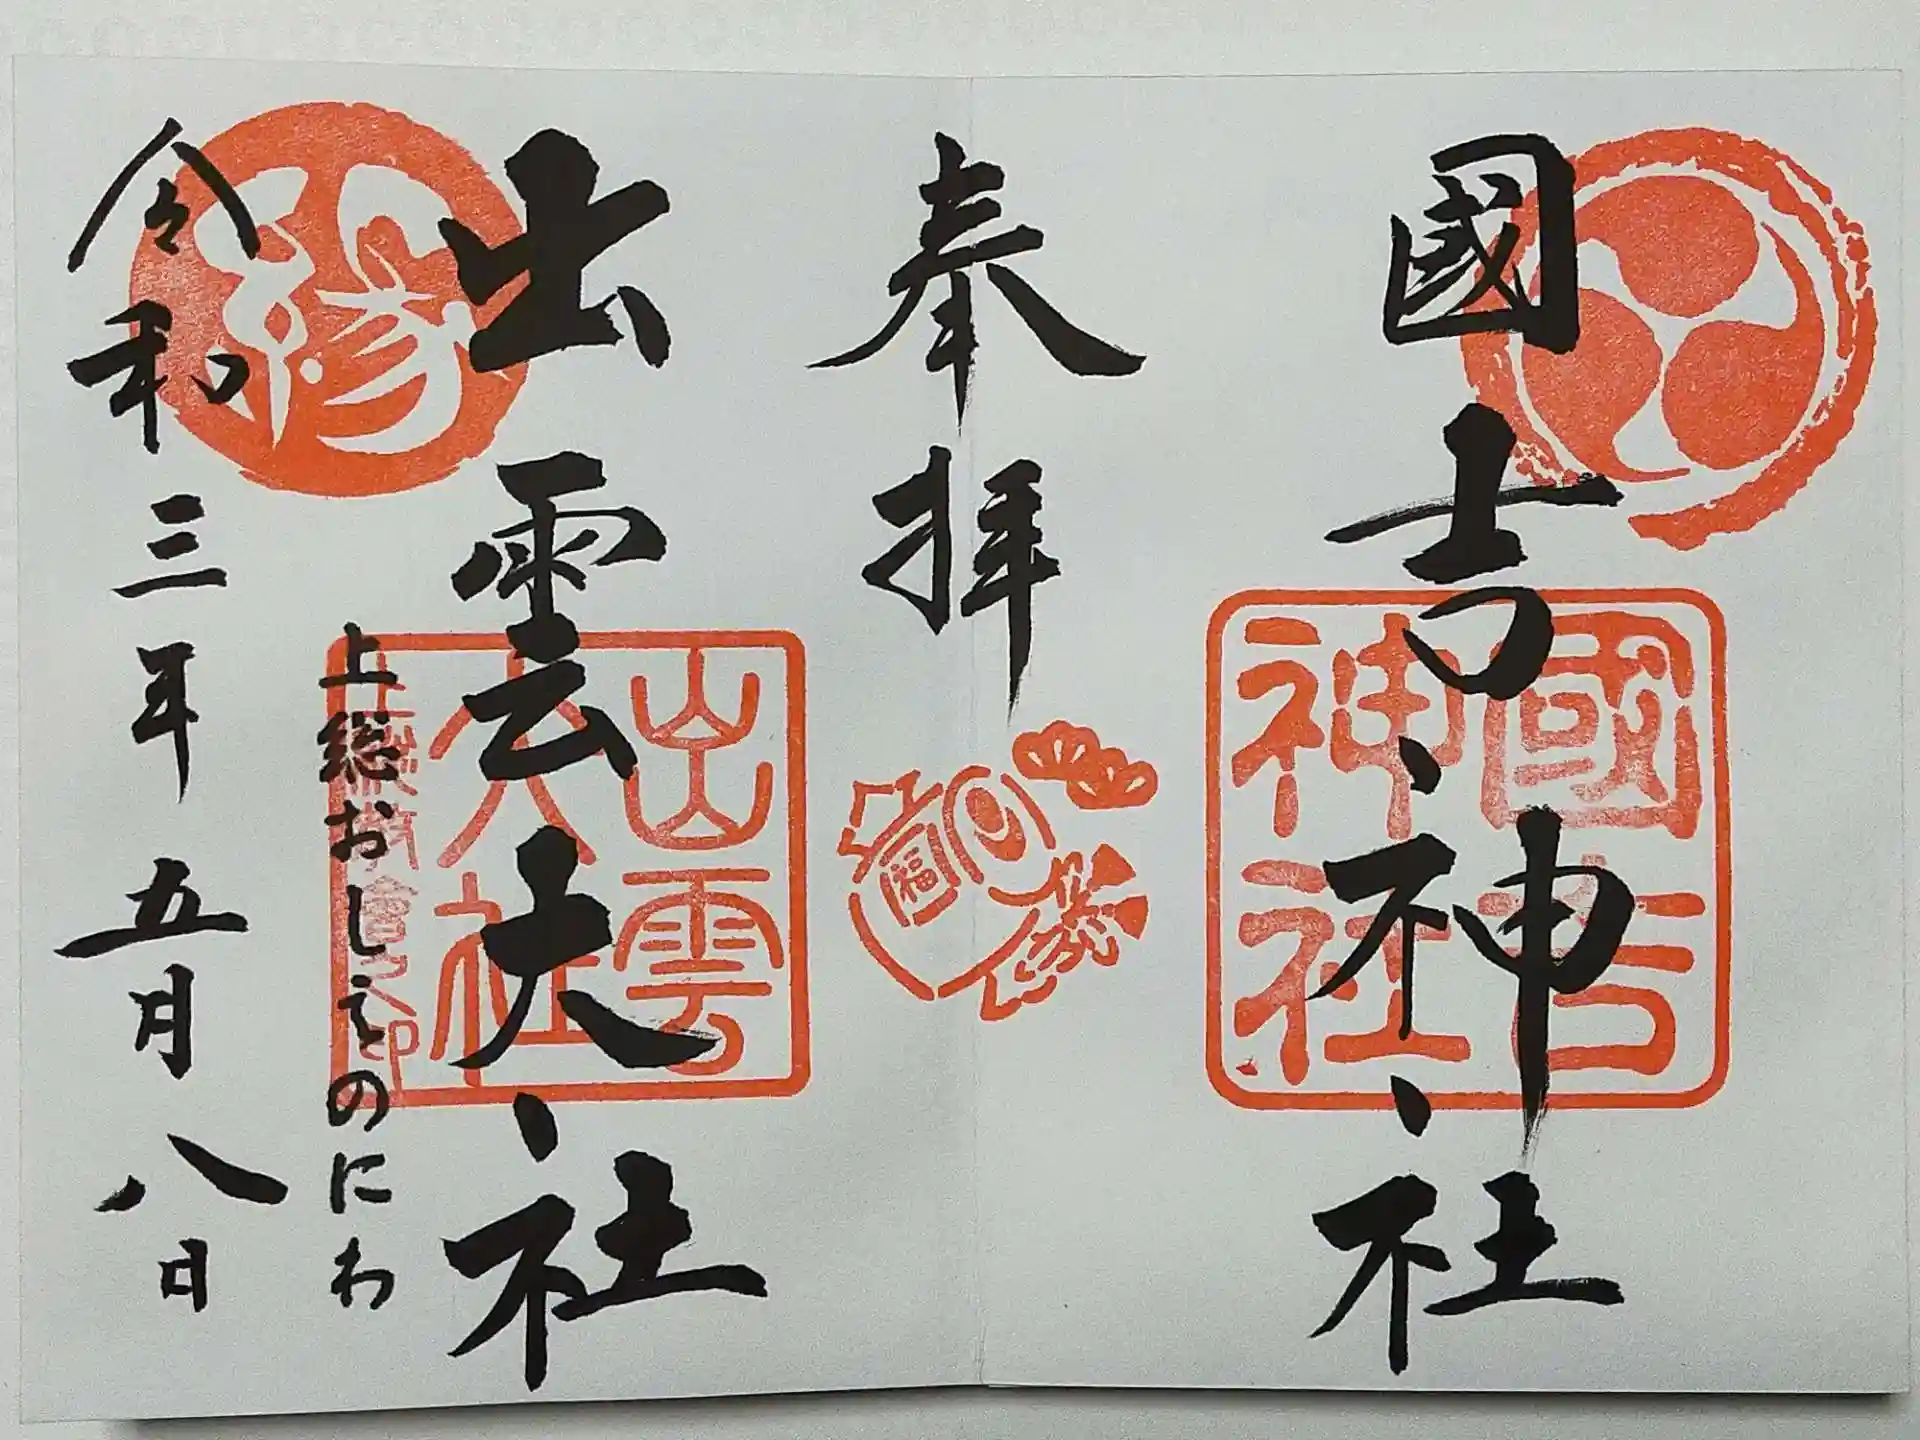 國吉神社
國吉
神社
奉拝
福
出雲大社
出雲
大社
縁
上総おしえのにわ
令和三年五月八日